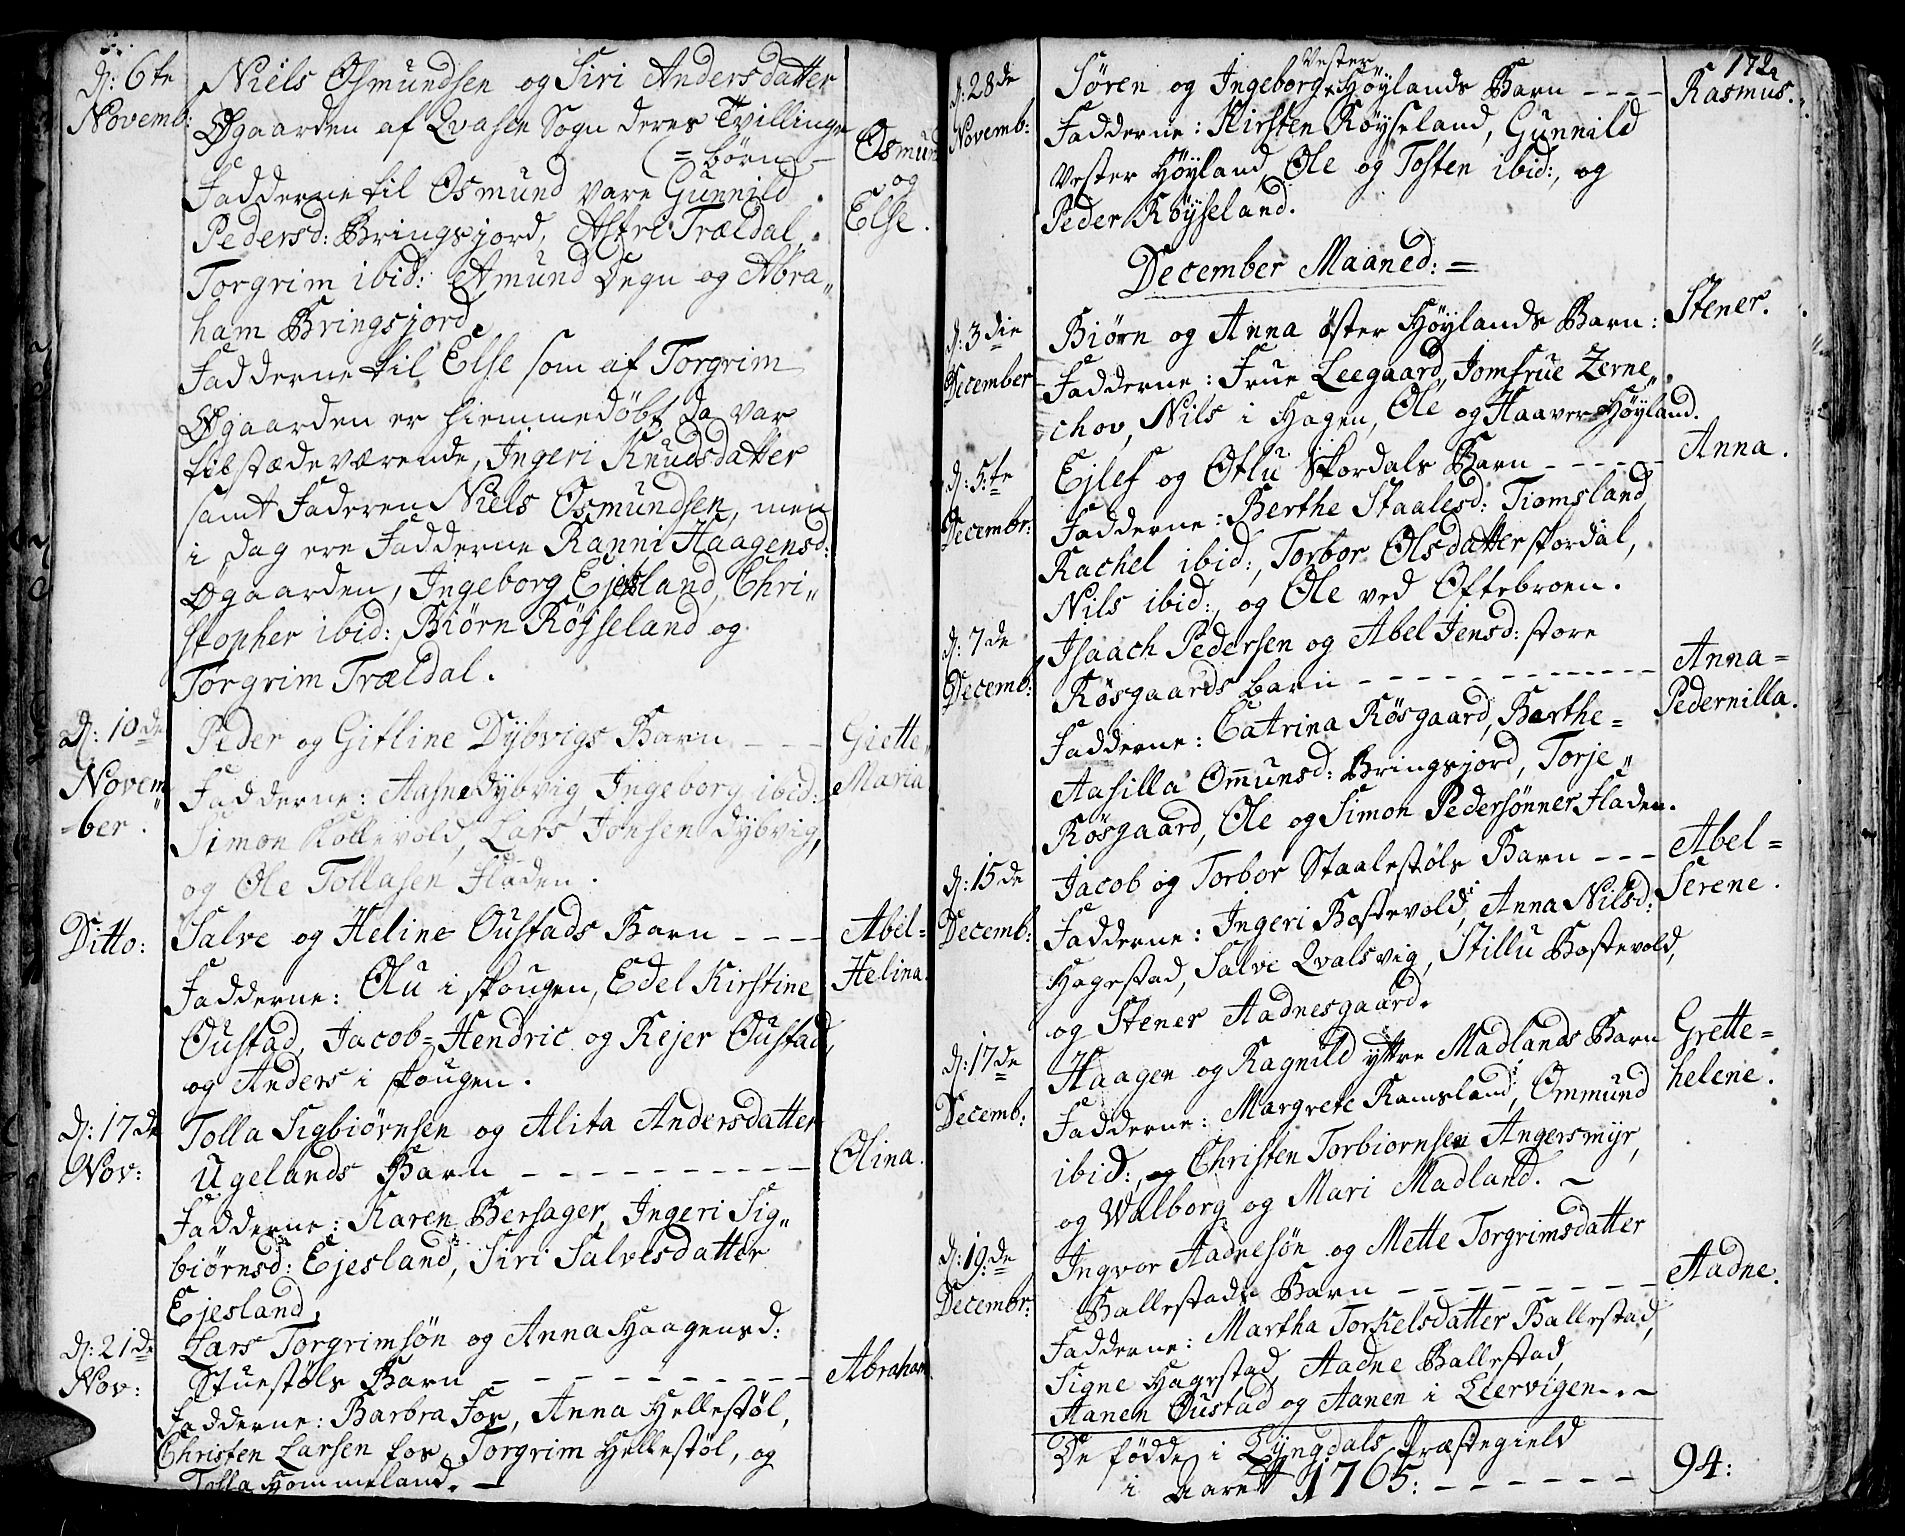 d: 6te
Novemb:
Niels Osmundsen og Siri Andersdatter
Øgaarden af Qvasen Sogn deres Tvillinge
(= børn -
Osmund
og
Else.
Fadderne til Osmund vare Gunnild
Pedersd: Bringsjord, Astre Trældal,
Torgrim ibid: Amund Degn og Abra„
ham Bringsjord.
Fadderne til Else som af Torgrim
Øgaarden er hiemmedøbt, da var
tilstædeværende, Ingeri Knudsdatter
samt Faderen Niels Osmundsen, men
i dag ere Fadderne Ranni Haagensd:
Øgaarden, Ingeborg Ejesland, Chri„
stopher ibid: Biørn Røyseland og
Torgrim Trældal.
d: 10de
Novem„
-ber.
Peder og Gitline Dybvigs Barn - - -
Giette„
Maria
Fadderne: Aasne Dybvig, Ingeborg ibid:
Simon Kollevold, Lars Jonsen Dybvig,
og Ole Tollasen Fladen.
Ditto:
Salve og Heline Oustads Barn - - - -
Abel=
Helina.
Fadderne: Olu i skougen, Edel Kirstine
Oustad, Jacob=Hendric og Rejer Oustad,
og Anders i skougen.
d: 17de
Nov:
Tolla Sigbiørnsen og Alita Andersdatter
Ugelands Barn - - - - - - - - - -
Olina.
Fadderne: Karen Bersager, Ingeri Sig„
biørnsd: Ejesland, Siri Salvesdatter
Ejesland.
d: 21de
Nov:
Lars Torgrimsøn og Anna Haagensd:
Stuestøls Barn - - - - - - - - - -
Abraham
Fadderne: Barbra Foss, Anna Hellestøl,
Christen Larsen Foss, Torgrim Hellestøl, og
Tolla Hommeland. -
172
d: 28de
Novemb:
Vester
Søren og Ingeborg Høylands Barn - - - -
Rasmus.
Fadderne: Kirsten Røyseland, Gunnild
Vester Høyland, Ole og Tosten ibid:, og
Peder Røyseland.
December Maaned: =
d: 3die
December
Biørn og Anna øster Høylands Barn:
Stener.
Fadderne: Frue Leegaard, Jomfrue Zerne„
chov, Nils i Hagen, Ole og Haaver Høyland.
d: 5te
Decembr:
Ejlef og Otlu Skordals Barn - - - - -
Anna.
Fadderne: Berthe Staalesd: Tiomsland,
Rachel ibid:, Torbor Olsdatter skordal,
Nils ibid:, og Ole ved Oftebroen.
d: 7de
Decemb:
Isaach Pedersen og Abel Jensd: store
Røsgaards barn - - - - - - - - - - - -
Anna=
Pedernilla.
Fadderne: Catrina Røsgaard, Barthe=
Aasilla Omunsd: Bringsjord, Torje„
Røsgaard, Ole og Simon Pedersønner Fladen.
d: 15de
Decemb:
Jacob og Torbor Staalestøls Barn - - -
Abel=
Serene.
Fadderne: Ingeri Bostevold, Anna Nilsd:
Hagestad, Salve Qvalsvig, Stillu Bostevold,
og Stener Aadnesgaard.
d: 17de
Decemb:
Haagen og Ragnild yttre Madlands Barn
Grette=
helene.
Fadderne: Margrete Ramsland, Ommund
ibid:, og Christen Torbiornsen Angersmyr,
og Walborg og Mari Madland. -
d: 19de
Decembr:
Ingvor Aadnesøn og Mette Torgrimsdatter
Ballestads Barn - - - - - - - -
Aadne.
Fadderne: Martha Torkelsdatter Ballestad,
Signe Hagestad, Aadne Ballestad,
Aanen Oustad og Aanen i Leervigen. -
De fødde i Lyngdals Præstegield
i Aaret 1765: - - - - - -
94: